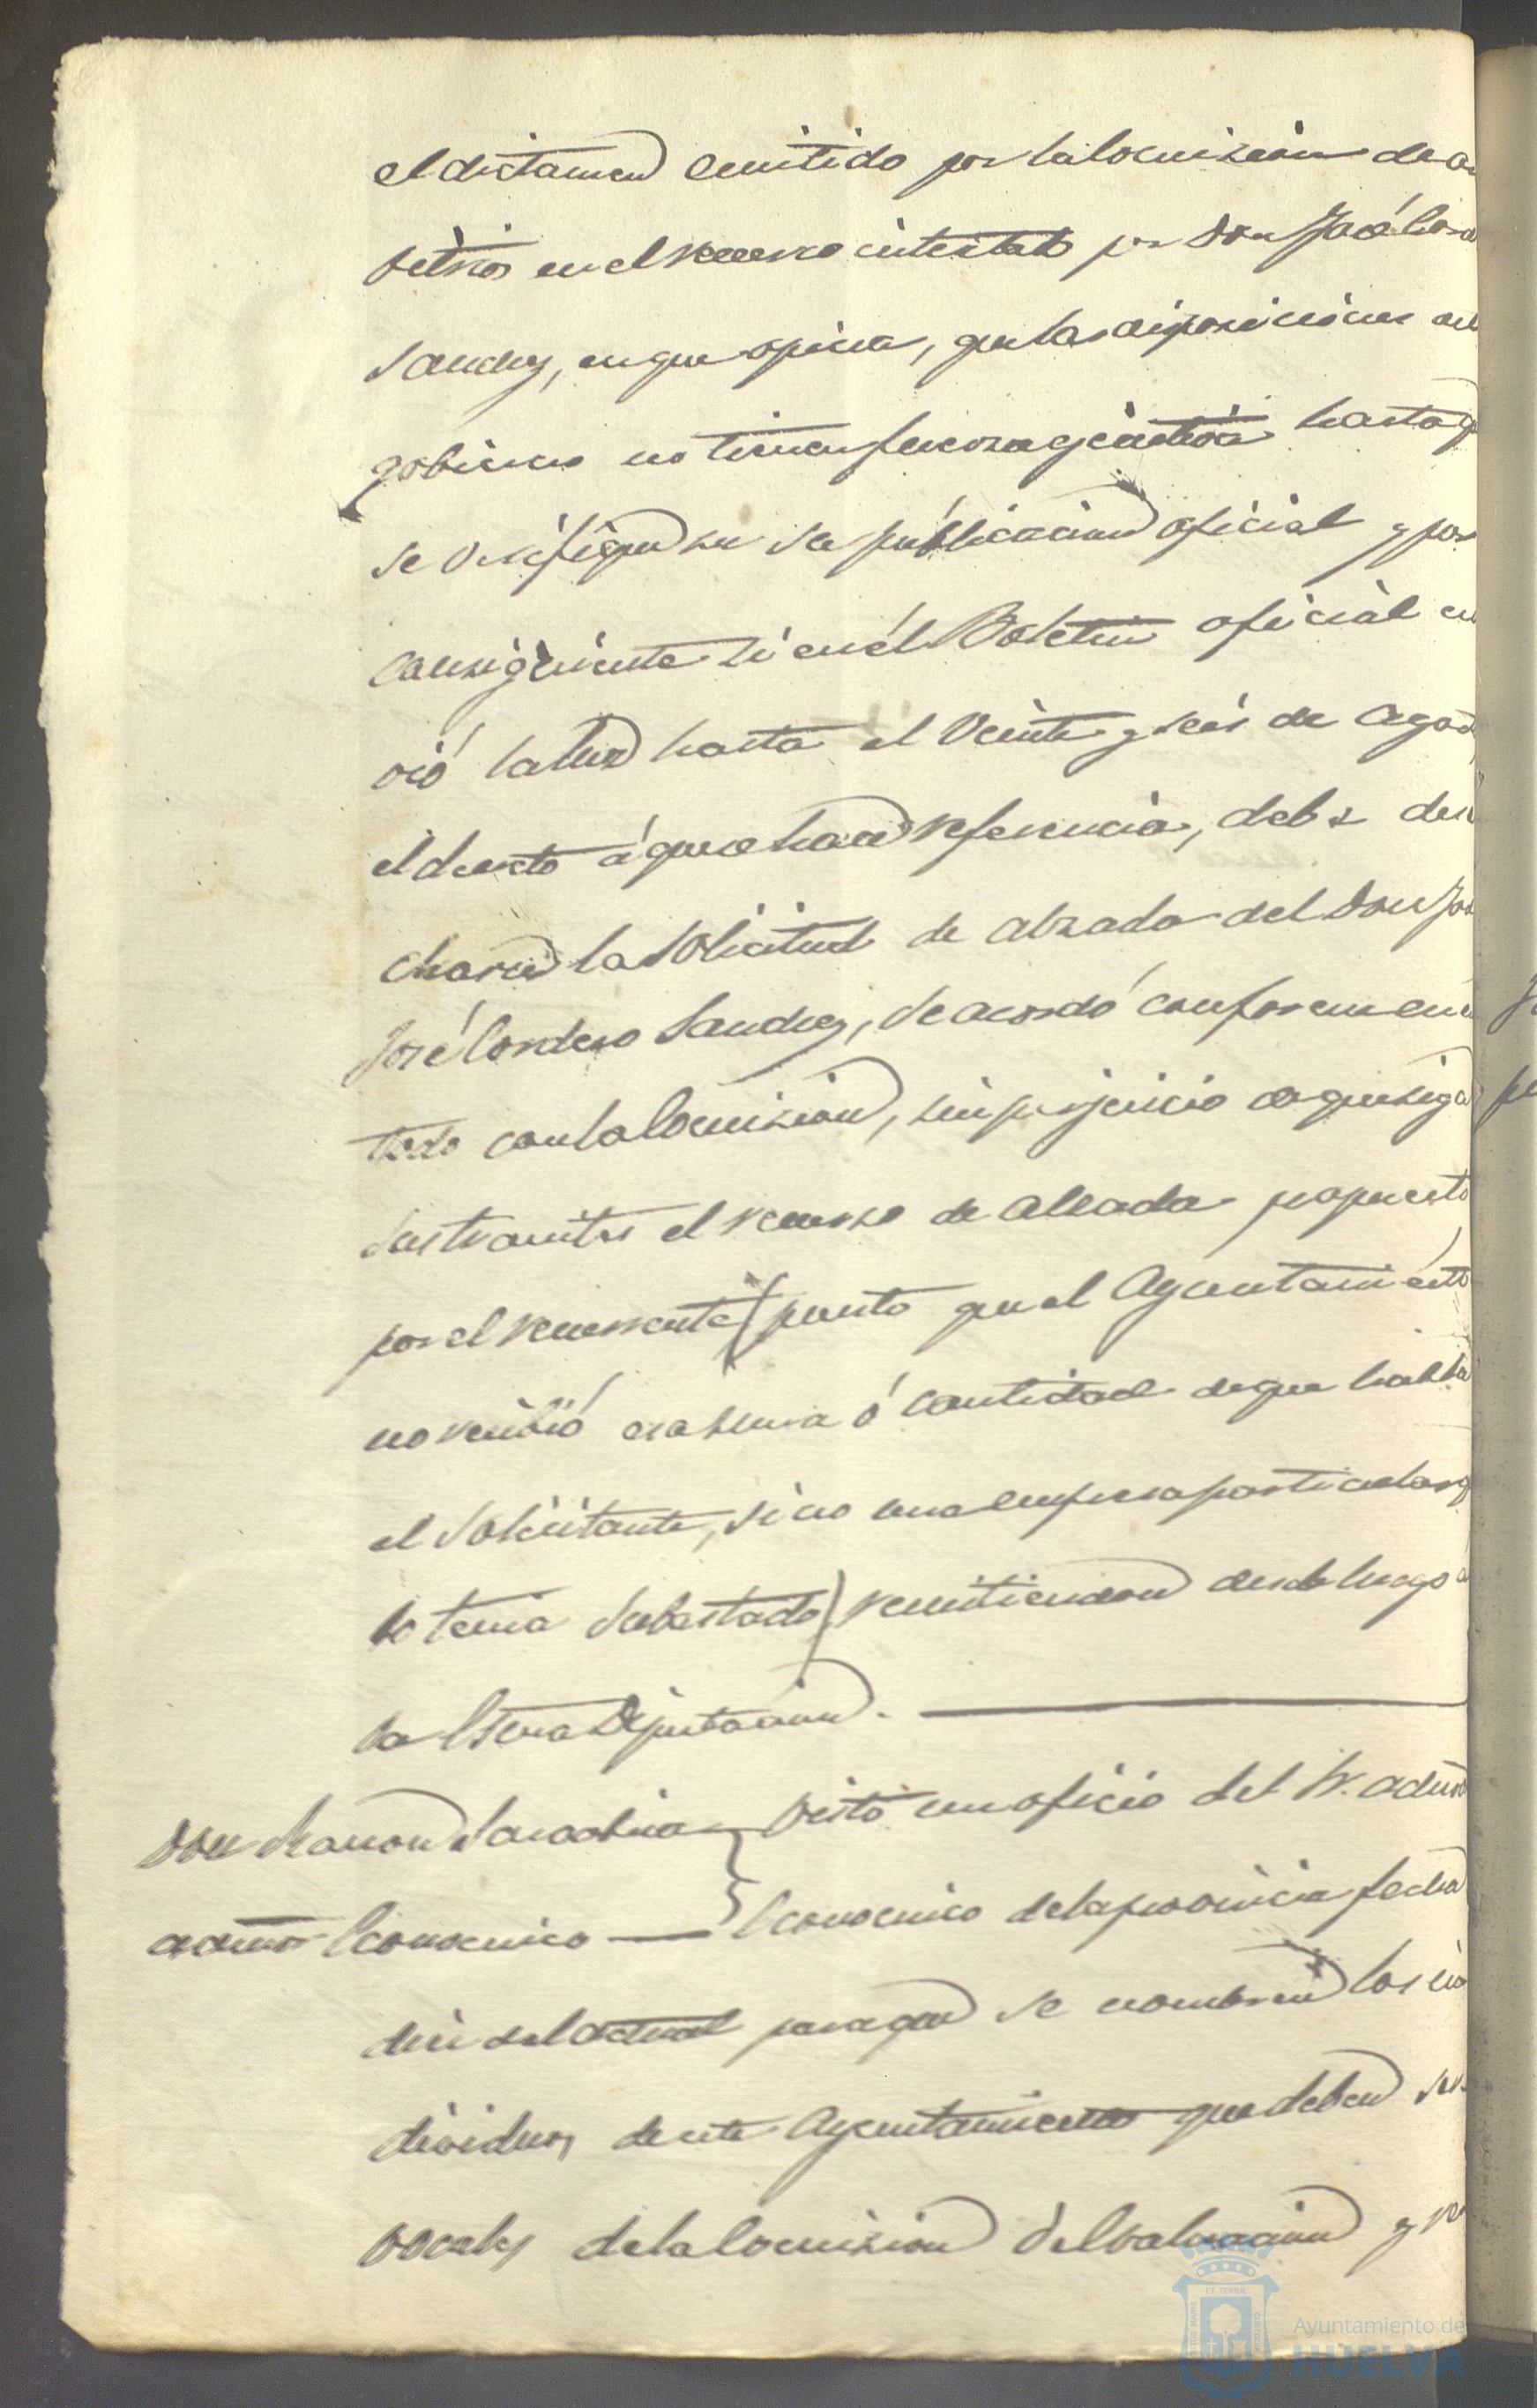 el dictamen emitido por la Comision de ar
bitrios en el recurso intentado por Don José Cord
Sanchez, en que opina, que las disposiciones del
gobierno no tienen fuerza ejecutiva hasta q
se verifique su publicacion oficial y por
consiguiente si en el Boletin oficial no
vió la luz hasta el veinte y seis de Agos
el decreto á que se hace referencia, debe des
charse la solicitud de alzada del Don Jos
José Cordero Sanchez, se acordó conformeme
todo con la Comision, sin perjuicio de que siga
sus tramites el recurso de alzada propuesto
por el recurrente (puesto que el Ayuntamiento
no recibió esa suma ó cantidad de que habla
el solicitante, sino una empresa particular q
lo tenia subastado) remitiendose desde luego a
la Escma Diputacion.
Don Ramon
Visto un oficio del Sr. Admor
Admor Economico
Economico de la provincia fecha
diez del actual para que se nombren los in
dividuos de este Ayuntamiento que deben ser
vocales de la Comision de Evaluacion y re
Ayuntamiento de
HUELVA